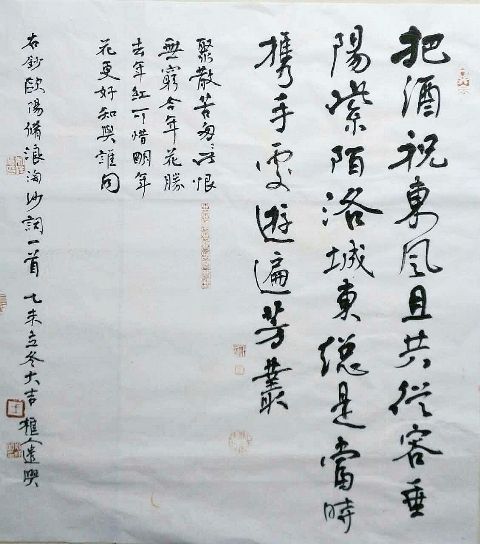 把酒祝東風且共從容垂
陽紫陌洛城東總是當時
携手處遊遍芳叢
聚散苦匆匆此恨
無窮今年花勝
去年紅可惜明年
花更好知與誰同
右鈔歐陽脩浪淘沙詞一首 乙未立冬大吉 樵人遣興